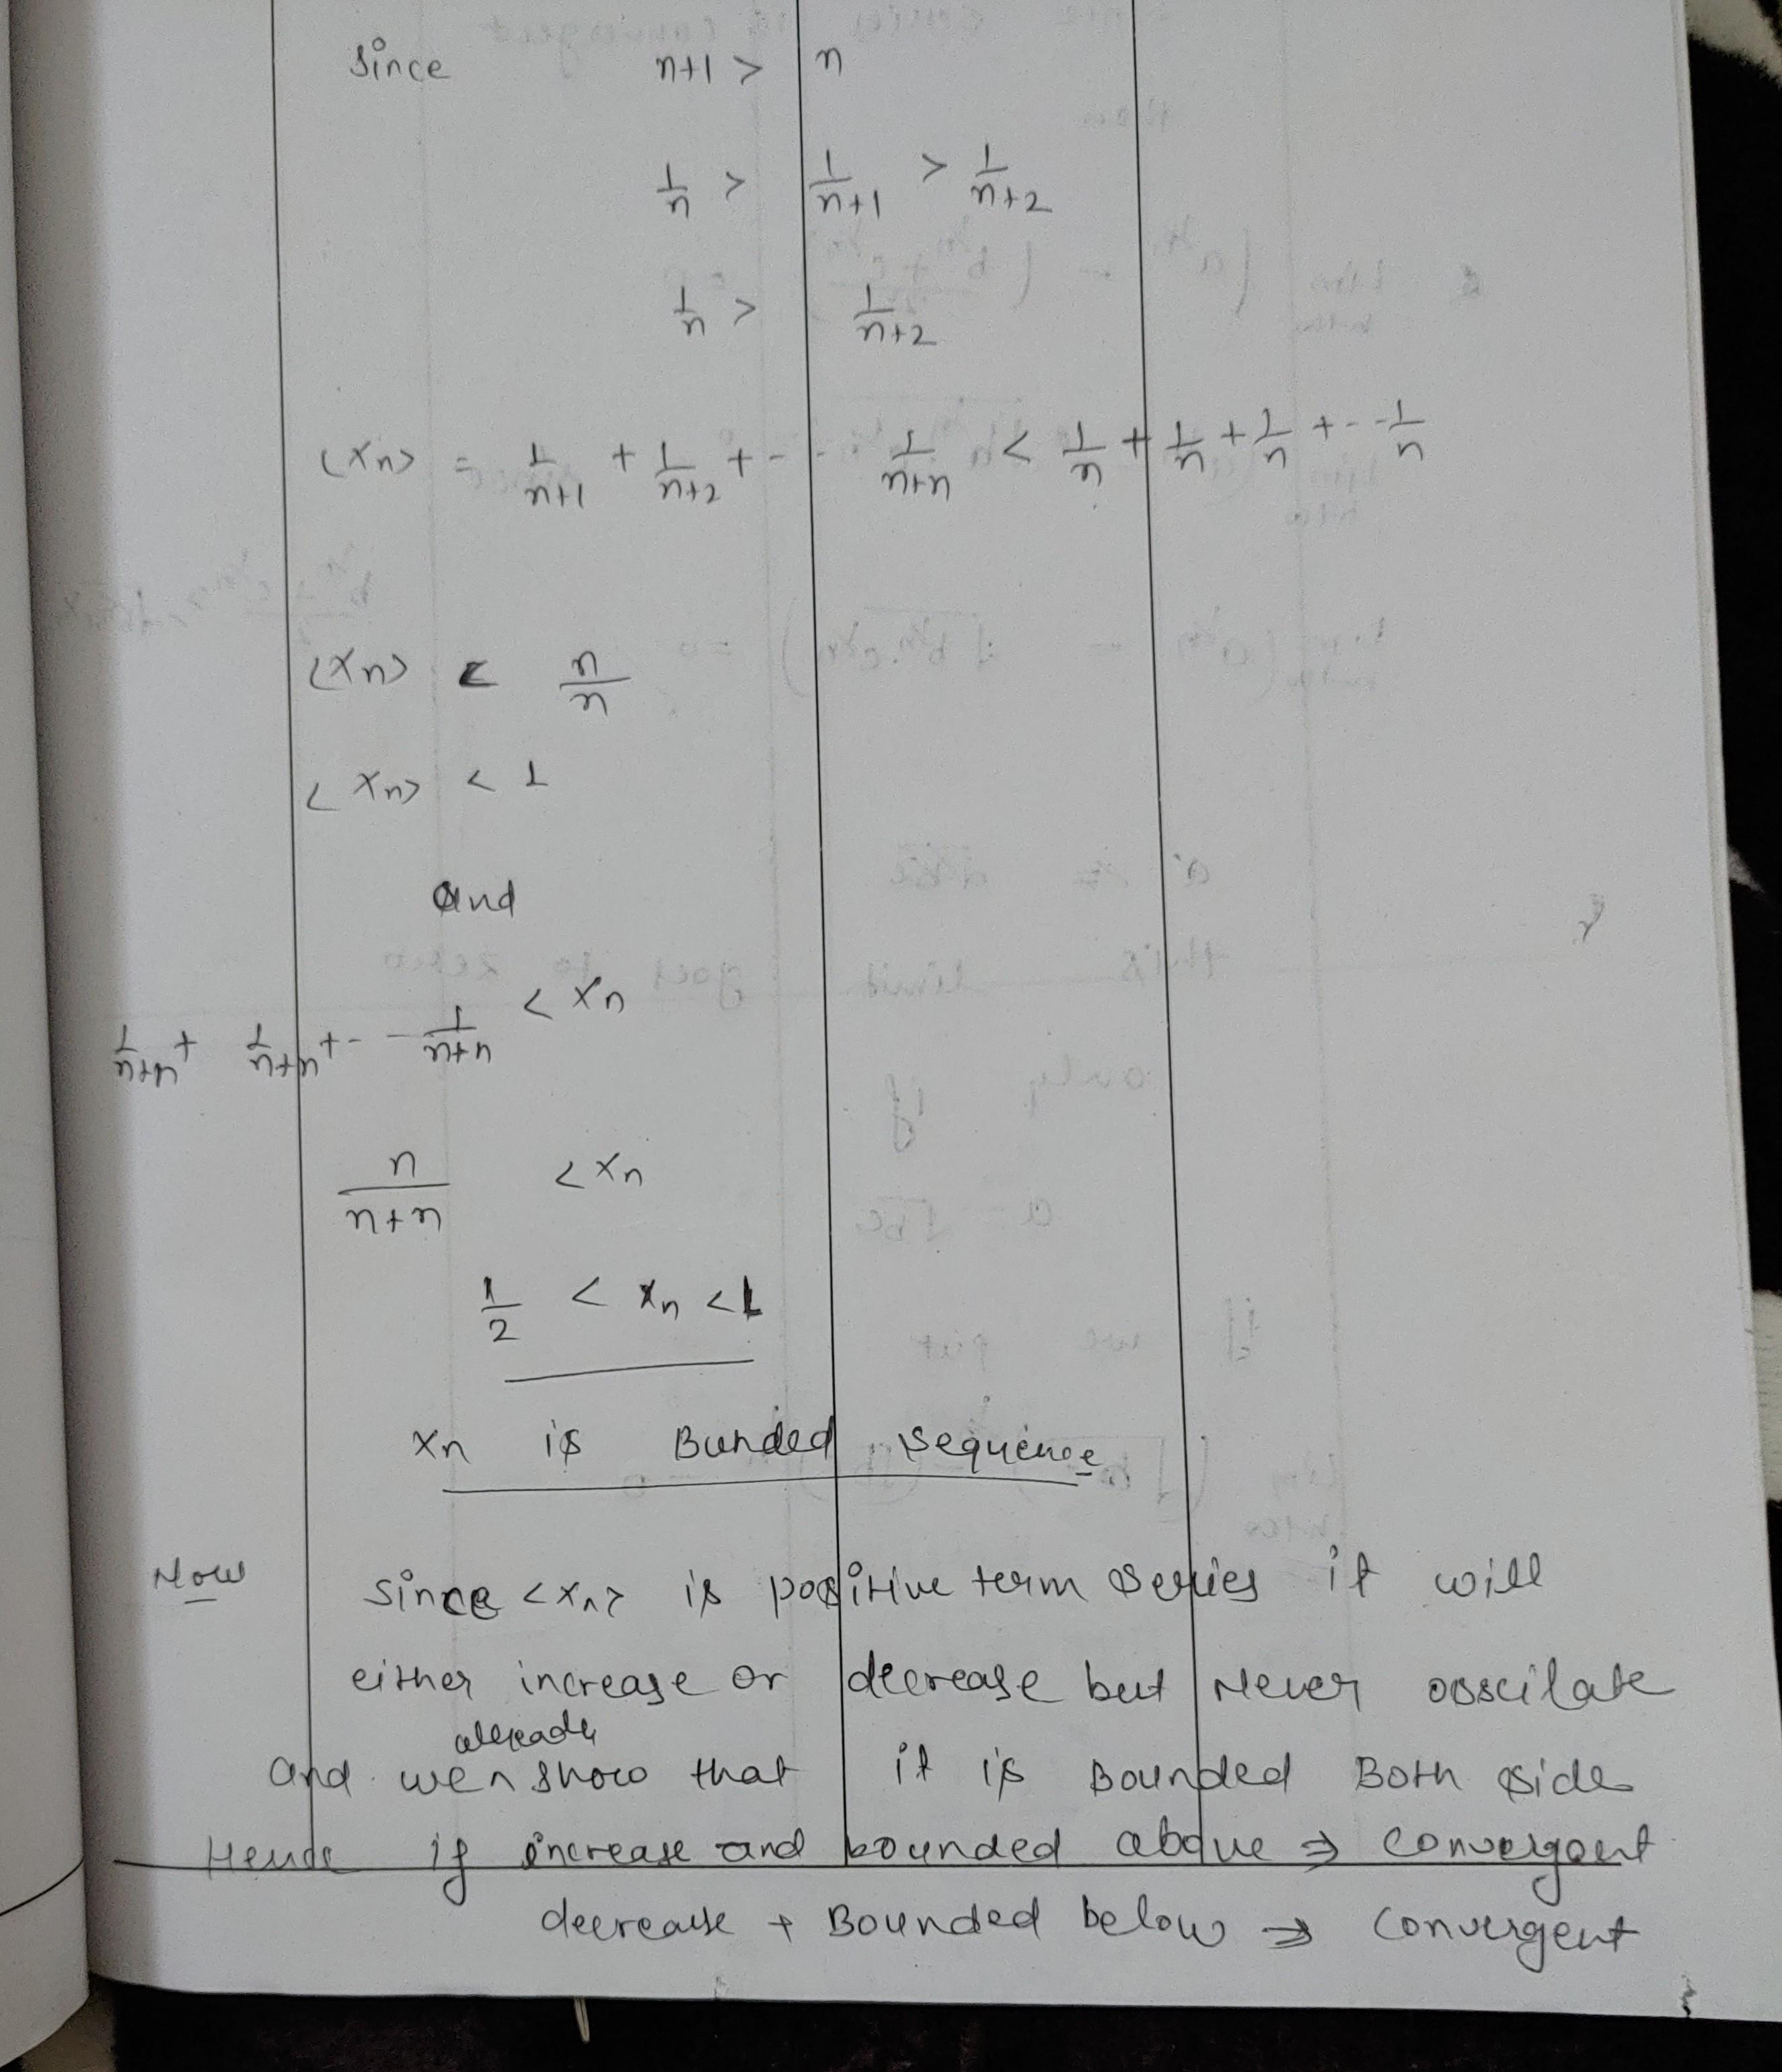 Since n+1 > n
1/n > 1/n+1 > 1/n+2
1/n > 1/n+2
<xn> = 1/n+1 + 1/n+2 + - - - 1/n+n < 1/n + 1/n + 1/n + - - 1/n
<xn> < n/n
<xn> < 1
And
1/n+n + 1/n+n + - - 1/n+n < xn
n/n+n < xn
1/2 < xn < 1
xn is Bunded sequence
Now Since <xn> is positive term series it will
either increase or decrease but Never osscilate
already
and we show that it is Bounded Both side
Hence if increase and bounded above ⇒ convergent
decrease + Bounded below ⇒ convergent